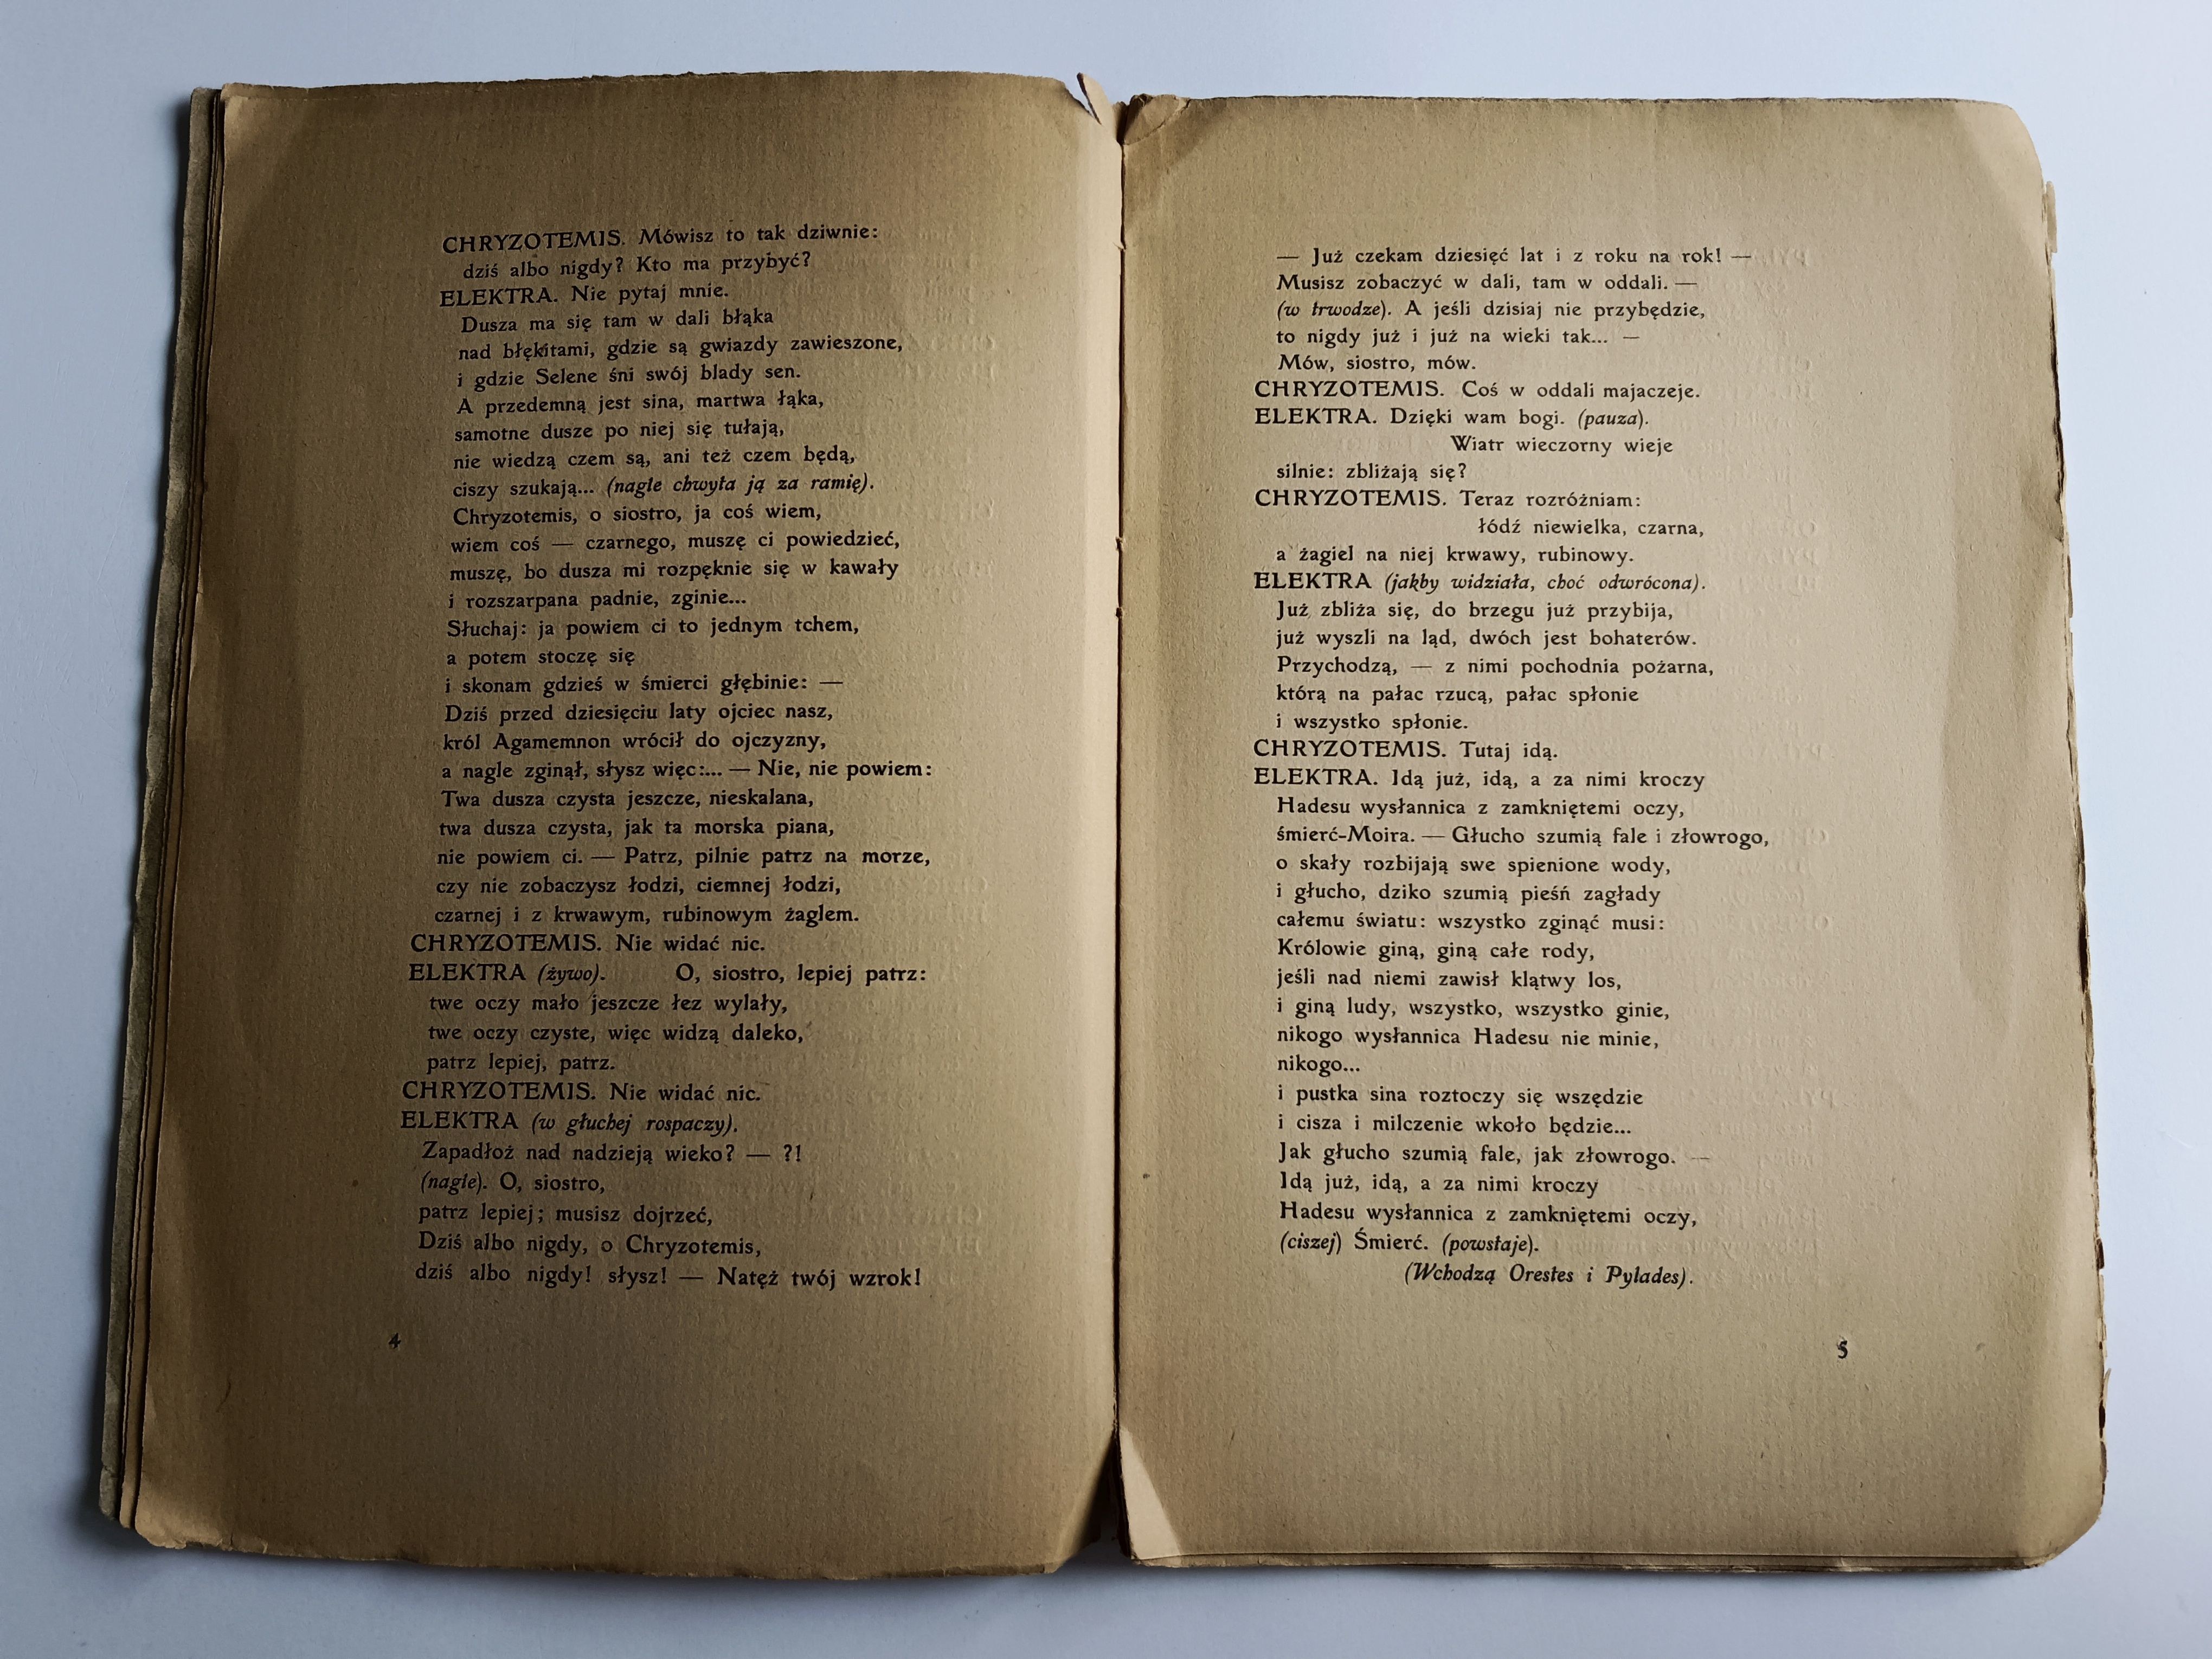 CHRYZOTEMIS. Mówisz to tak dziwnie:
dziś albo nigdy? Kto ma przybyć?
ELEKTRA. Nie pytaj mnie.
Dusza ma się tam w dali błąka
nad błękitami, gdzie są gwiazdy zawieszone,
i gdzie Selene śni swój blady sen.
A przedemną jest sina, martwa łąka,
samotne dusze po niej się tułają,
nie wiedzą czem są, ani też czem będą,
ciszy szukają... (nagle chwyta ją za ramię).
Chryzotemis, o siostro, ja coś wiem,
wiem coś — czarnego, muszę ci powiedzieć,
muszę, bo dusza mi rozpęknie się w kawały
i rozszarpana padnie, zginie...
Słuchaj: ja powiem ci to jednym tchem,
a potem stoczę się
i skonam gdzieś w śmierci głębinie: —
Dziś przed dziesięciu laty ojciec nasz,
król Agamemnon wrócił do ojczyzny,
a nagle zginął, słysz więc:... — Nie, nie powiem:
Twa dusza czysta jeszcze, nieskalana,
twa dusza czysta, jak ta morska piana,
nie powiem ci. — Patrz, pilnie patrz na morze,
czy nie zobaczysz łodzi, ciemnej łodzi,
czarnej i z krwawym, rubinowym żaglem.
CHRYZOTEMIS. Nie widać nic.
ELEKTRA (żywo). O, siostro, lepiej patrz:
twe oczy mało jeszcze łez wylały,
twe oczy czyste, więc widzą daleko,
patrz lepiej, patrz.
CHRYZOTEMIS. Nie widać nic.
ELEKTRA (w głuchej rospaczy).
Zapadłoż nad nadzieją wieko? — ?!
(nagle). O, siostro,
patrz lepiej; musisz dojrzeć,
Dziś albo nigdy, o Chryzotemis,
dziś albo nigdy! słysz! — Natęż twój wzrok!
4
— Już czekam dziesięć lat i z roku na rok! —
Musisz zobaczyć w dali, tam w oddali. —
(w trwodze). A jeśli dzisiaj nie przybędzie,
to nigdy już i już na wieki tak... —
Mów, siostro, mów.
CHRYZOTEMIS. Coś w oddali majaczeje.
ELEKTRA. Dzięki wam bogi. (pauza).
Wiatr wieczorny wieje
silnie: zbliżają się?
CHRYZOTEMIS. Teraz rozróżniam:
łódź niewielka, czarna,
a żagiel na niej krwawy, rubinowy.
ELEKTRA (jakby widziała, choć odwrócona).
Już zbliża się, do brzegu już przybija,
już wyszli na ląd, dwóch jest bohaterów.
Przychodzą, — z nimi pochodnia pożarna,
którą na pałac rzucą, pałac spłonie
i wszystko spłonie.
CHRYZOTEMIS. Tutaj idą.
ELEKTRA. Idą już, idą, a za nimi kroczy
Hadesu wysłannica z zamkniętemi oczy,
śmierć-Moira. — Głucho szumią fale i złowrogo,
o skały rozbijają swe spienione wody,
i głucho, dziko szumią pieśń zagłady
całemu światu: wszystko zginąć musi:
Królowie giną, giną całe rody,
jeśli nad niemi zawisł klątwy los,
i giną ludy, wszystko, wszystko ginie,
nikogo wysłannica Hadesu nie minie,
nikogo...
i pustka sina roztoczy się wszędzie
i cisza i milczenie wkoło będzie...
Jak głucho szumią fale, jak złowrogo. —
Idą już, idą, a za nimi kroczy
Hadesu wysłannica z zamkniętemi oczy,
(ciszej) Śmierć. (powstaje).
(Wchodzą Orestes i Pylades).
5